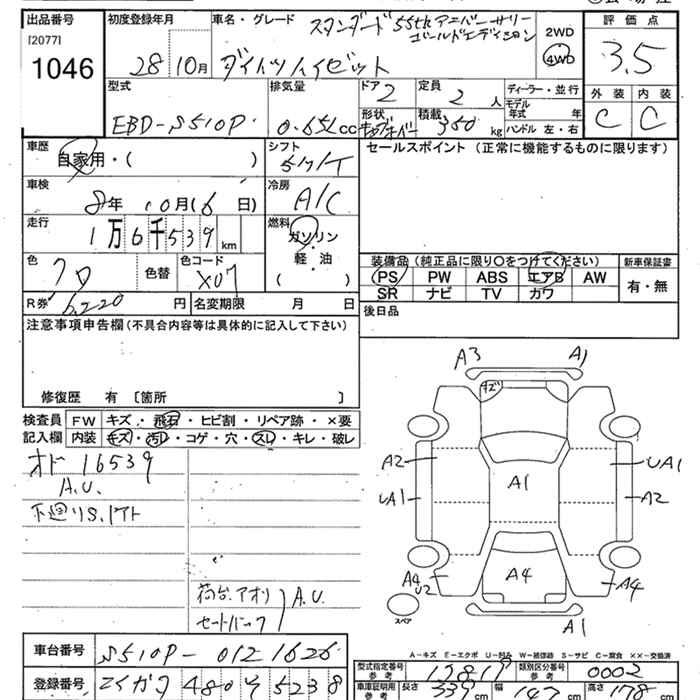 出品番号
[2077]
1046
初度登録年月
28 10月
車名・グレード
スタンダード 55thアニバーサリー
ゴールドエディション
ダイハツハイゼット
2WD
4WD
評価点
3.5
外装 内装
C C
型式
EBD-S510P
排気量
0.65Lcc
ドア
2
定員
2人
形状
積載
350kg
ディーラー・並行
モデル年式 年
ハンドル 左・右
車歴
自家用・( )
シフト
車検
8年 10月(6日)
冷房
A/C
走行
1万6千539km
燃料
ガソリン・軽油
( )
色
クロ
色替
色コード
X07
R券
6,220円
名変期限 月 日
セールスポイント(正常に機能するものに限ります)
装備品(純正品に限り○をつけてください)
PS PW ABS エアB AW
SR ナビ TV カワ
新車保証書
有・無
後日品
注意事項申告欄(不具合内容等は具体的に記入して下さい)
修復歴 有 〔箇所 〕
検査員記入欄
FW キズ・飛石・ヒビ割・リペア跡・×要
内装 キズ・汚レ・コゲ・穴・スレ・キレ・破レ
オド 16539
A.U.
下廻りS.
荷台、アオリ
セートバック
A.U.
A3 A1
キズ
A2 A1 UA1
UA1 A2
A4 U2 A4 A4
スペア
A1
A-キズ E-エクボ U-凹み W-補修跡 S-サビ C-腐食 ××-交換済
車台番号
S510P-0121626
登録番号
480 5238
型式指定番号
参考
17817
類別区分番号
参考
0002
車庫証明用
参考
長さ 339cm 幅 147cm 高さ 178cm